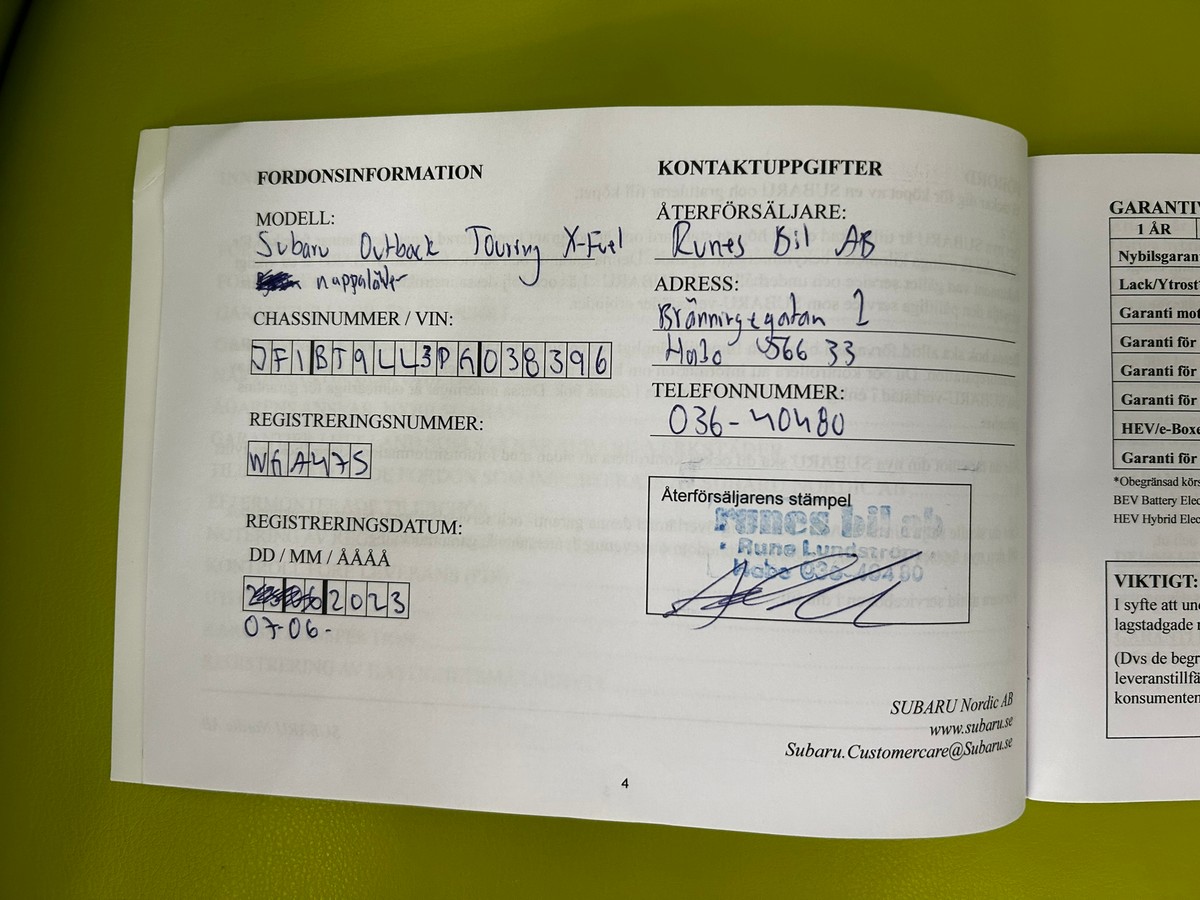 FORDONSINFORMATION
MODELL:
Subaru Outback Touring X-Fuel
nappaläder
CHASSINUMMER / VIN:
JF1BT9LL3PG038396
REGISTRERINGSNUMMER:
WGA47S
REGISTRERINGSDATUM:
DD / MM / ÅÅÅÅ
2023
07-06-
KONTAKTUPPGIFTER
ÅTERFÖRSÄLJARE:
Runes Bil AB
ADRESS:
Bränningegatan 2
Habo 566 33
TELEFONNUMMER:
036-40480
Återförsäljarens stämpel
runes bil ab
• Rune Lundström •
Habo 036-404 80
SUBARU Nordic AB
www.subaru.se
Subaru.Customercare@Subaru.se
4
GARANTIV
1 ÅR
Nybilsgaran
Lack/Ytrost
Garanti mot
Garanti för
Garanti för
Garanti för
HEV/e-Boxe
Garanti för
*Obegränsad körs
BEV Battery Elec
HEV Hybrid Elec
VIKTIGT:
I syfte att und
lagstadgade r
(Dvs de begr
leveranstillfä
konsumenten